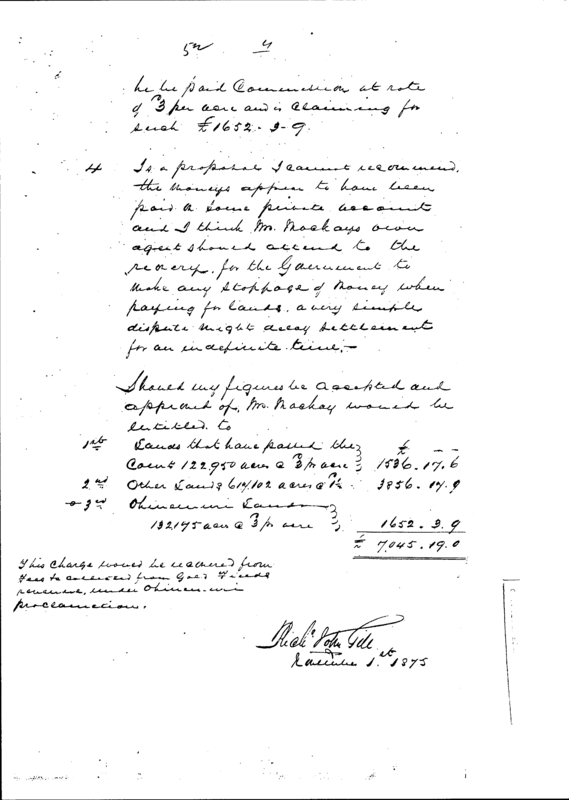 4
he be paid Commission at rate
of 3d per acre and is claiming for
such £1652-3-9.
4 Is a proposal I cannot recommend.
the moneys appear to have been
paid on some private account
and I think Mr. Mackays own
agent should attend to the
recovery, for the Government to
make any stoppage of money when
paying for lands, a very simple
dispute might delay settlement
for an indefinite time.—
Should my figures be accepted and
approved of, Mr. Mackay would be
entitled to
1st Lands that have passed the £ — —
Court 122950 acres @ 3d pr acre } 1536.17.6
2nd Other Lands 617,102 acres @ 1½d 3856.17.9
3rd Ohinemuri Lands
132175 acres @ 3d pr acre } 1652.3.9
£ 7,045.19.0
This Charge would be recovered from
Fees to collected from Gold Fields
revenue, under Ohinemuri
proclamation.
John
November 1st 1875